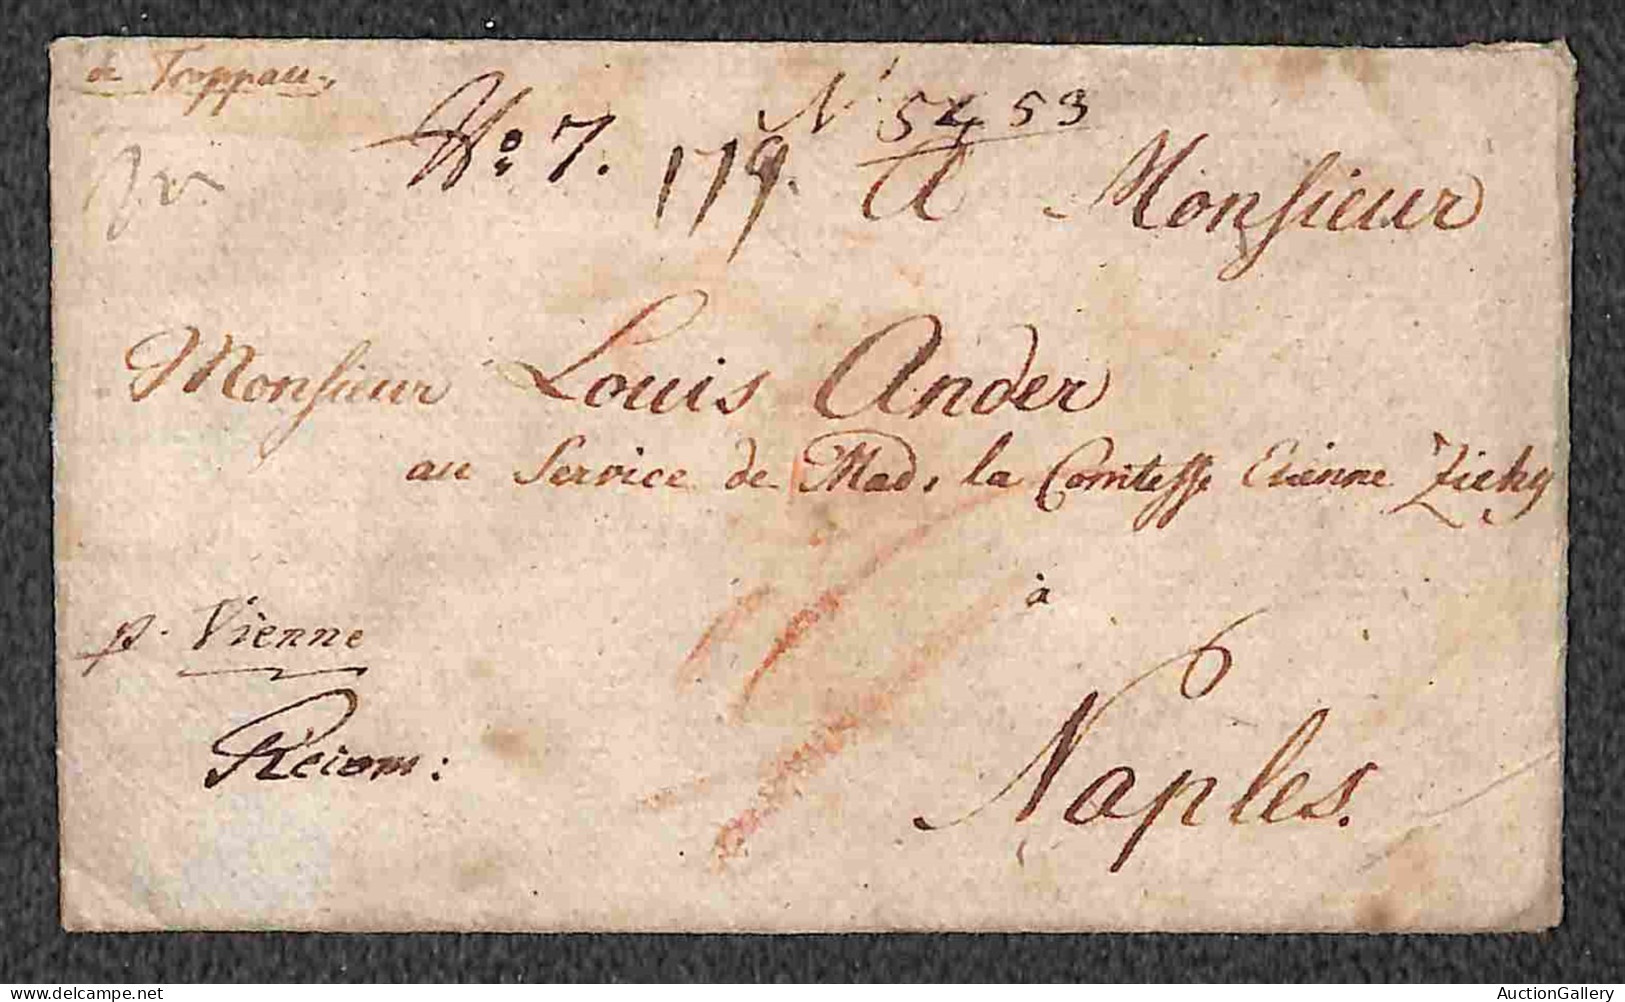 de Troppau.
No: 7.
N: 5453
179.
A Monsieur
Monsieur Louis Ander
au Service de Mad. la Comtesse Etienne Zichy
à
p. Vienne
6
Naples.
Recom:
AuctionGallery